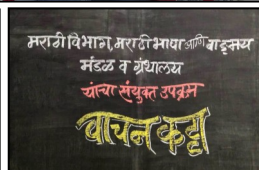 मराठी विभाग, मराठी भाषा आणि वाङ्मय
मंडळ व ग्रंथालय
यांचा संयुक्त उपक्रम
वाचन कट्टा